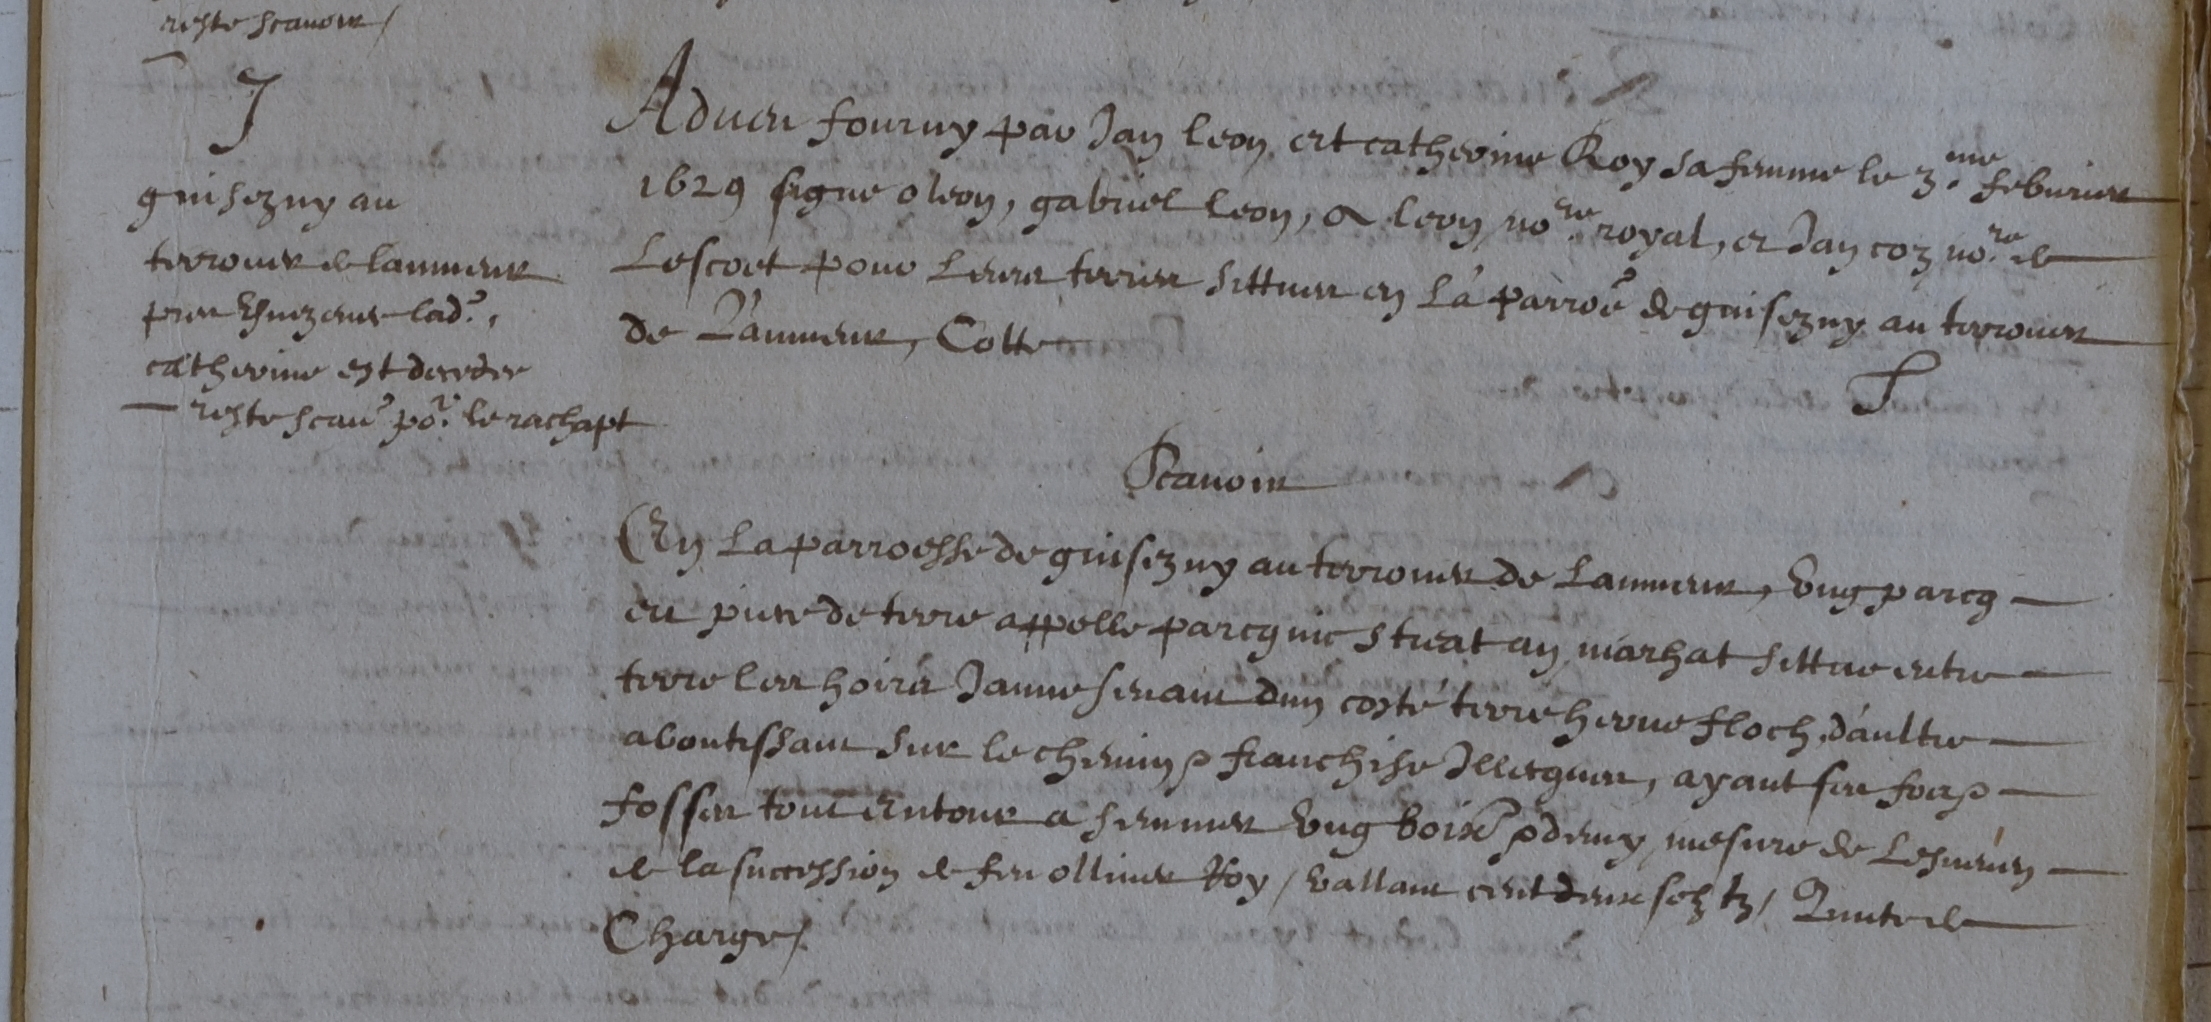 reste scauoir /
J
guisezny au
terrouer de lanmeur
pres lad.e
catherine est decedee
— reste scau.r po.r le rachapt
Adueu fourny par Jan leon et catherine Roy sa femme le 3.me feburier
1629 signe o leon, gabriel leon, & leon no.re royal, et Jan coz no.re de
Lescoet pour Leurs terres sittues en La parroe de guisezny au terrouer
de Lanmeur, Cotte
J
Scauoir
En La parroesse de guisezny au terrouer de Lanmeur, vng parcq
ou piece de terre appelle parcq nic streat an marhat sittue entre
terre les hoirs Janne d'un costé terre herue floch, d'aultre
aboutissant sur le chemin & franchise Illecques, ayant ses foss
fosses tout entour a semmer vng boix & demy mesure de Lesneuen
de la succession de feu olliuer Roy / vallant cent deux solz tz / quitte de
Charge /.